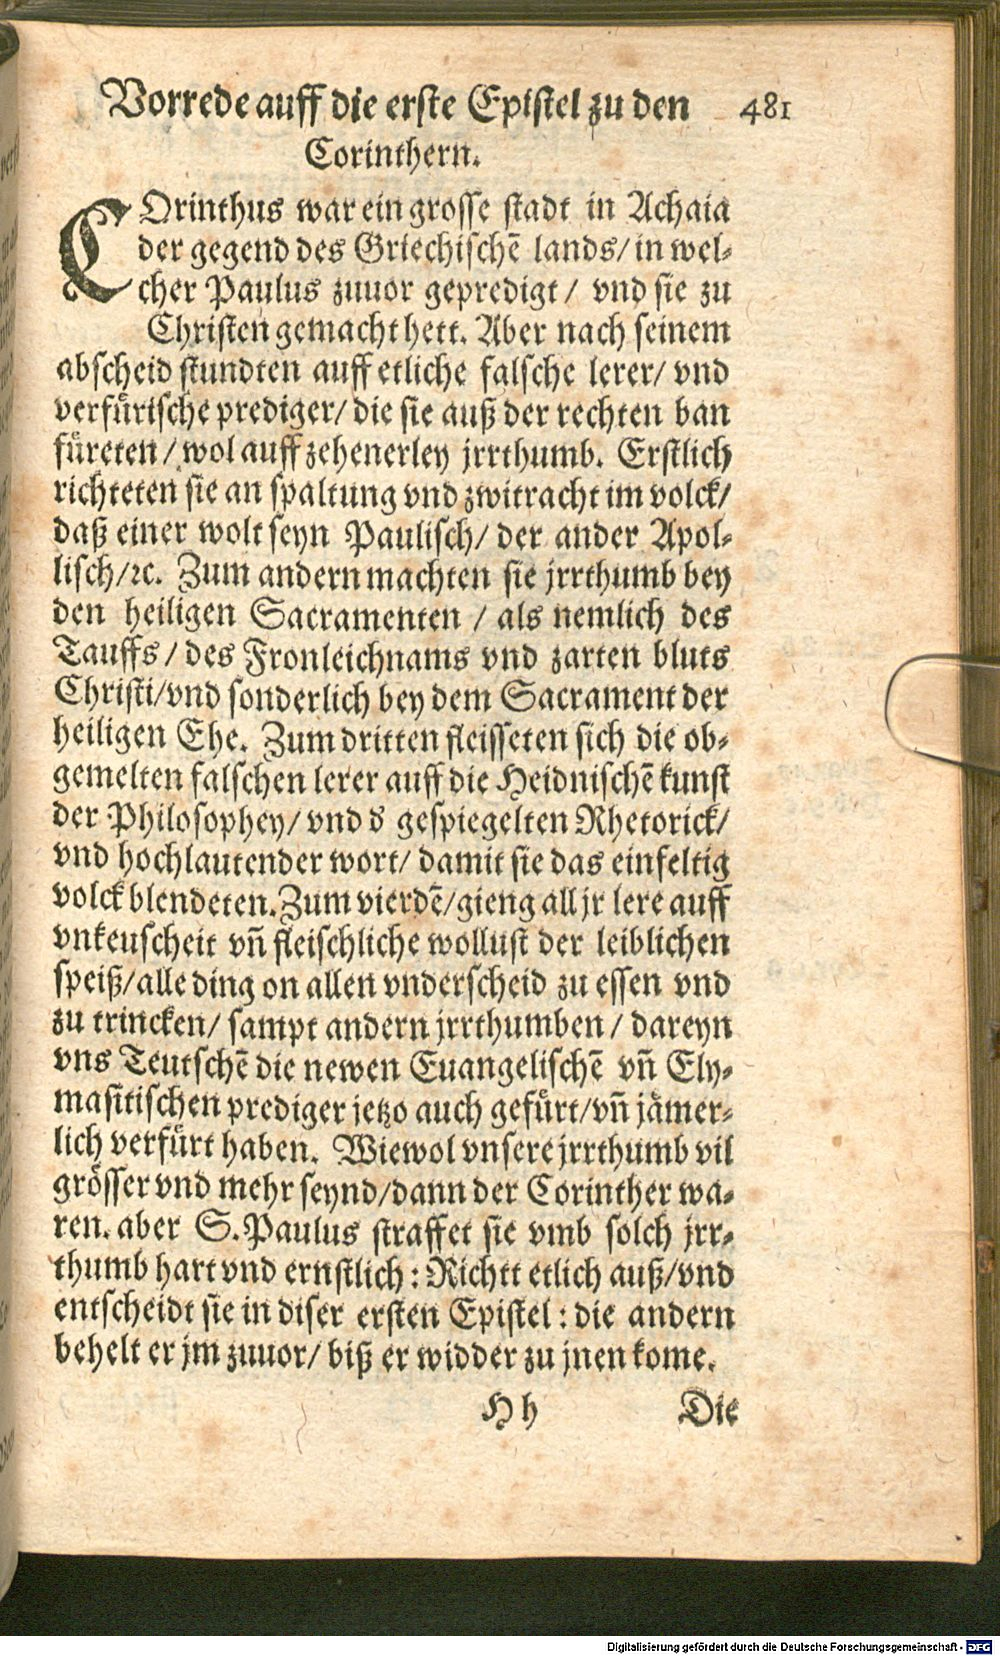 Vorrede auff die erste Epistel zu den 481
Corinthern.
COrinthus war ein grosse stadt in Achaia
der gegend des Griechischē lands/ in wel-
cher Paulus zuuor gepredigt / vnd sie zu
Christen gemacht hett. Aber nach seinem
abscheid stundten auff etliche falsche lerer/ vnd
verfürische prediger/ die sie auß der rechten ban
füreten / wol auff zehenerley jrrthumb. Erstlich
richteten sie an spaltung vnd zwitracht im volck/
daß einer wolt seyn Paulisch/ der ander Apol-
lisch/ ꝛc. Zum andern machten sie jrrthumb bey
den heiligen Sacramenten / als nemlich des
Tauffs / des Fronleichnams vnd zarten bluts
Christi/ vnd sonderlich bey dem Sacrament der
heiligen Ehe. Zum dritten fleisseten sich die ob-
gemelten falschen lerer auff die Heidnischē kunst
der Philosophey/ vnd d' gespiegelten Rhetorick/
vnd hochlautender wort/ damit sie das einfeltig
volck blendeten. Zum vierdē/ gieng all jr lere auff
vnkeuscheit vñ fleischliche wollust der leiblichen
speiß/ alle ding on allen vnderscheid zu essen vnd
zu trincken/ sampt andern jrrthumben / dareyn
vns Teutschē die newen Euangelischē vñ Ely-
masitischen prediger jetzo auch gefürt/ vñ jämer-
lich verfürt haben. Wiewol vnsere jrrthumb vil
grösser vnd mehr seynd/ dann der Corinther wa-
ren. aber S. Paulus straffet sie vmb solch jrr-
thumb hart vnd ernstlich : Richtt etlich auß/ vnd
entscheidt sie in diser ersten Epistel : die andern
behelt er jm zuuor/ biß er widder zu jnen kome.
H h Die
Digitalisierung gefördert durch die Deutsche Forschungsgemeinschaft - DFG